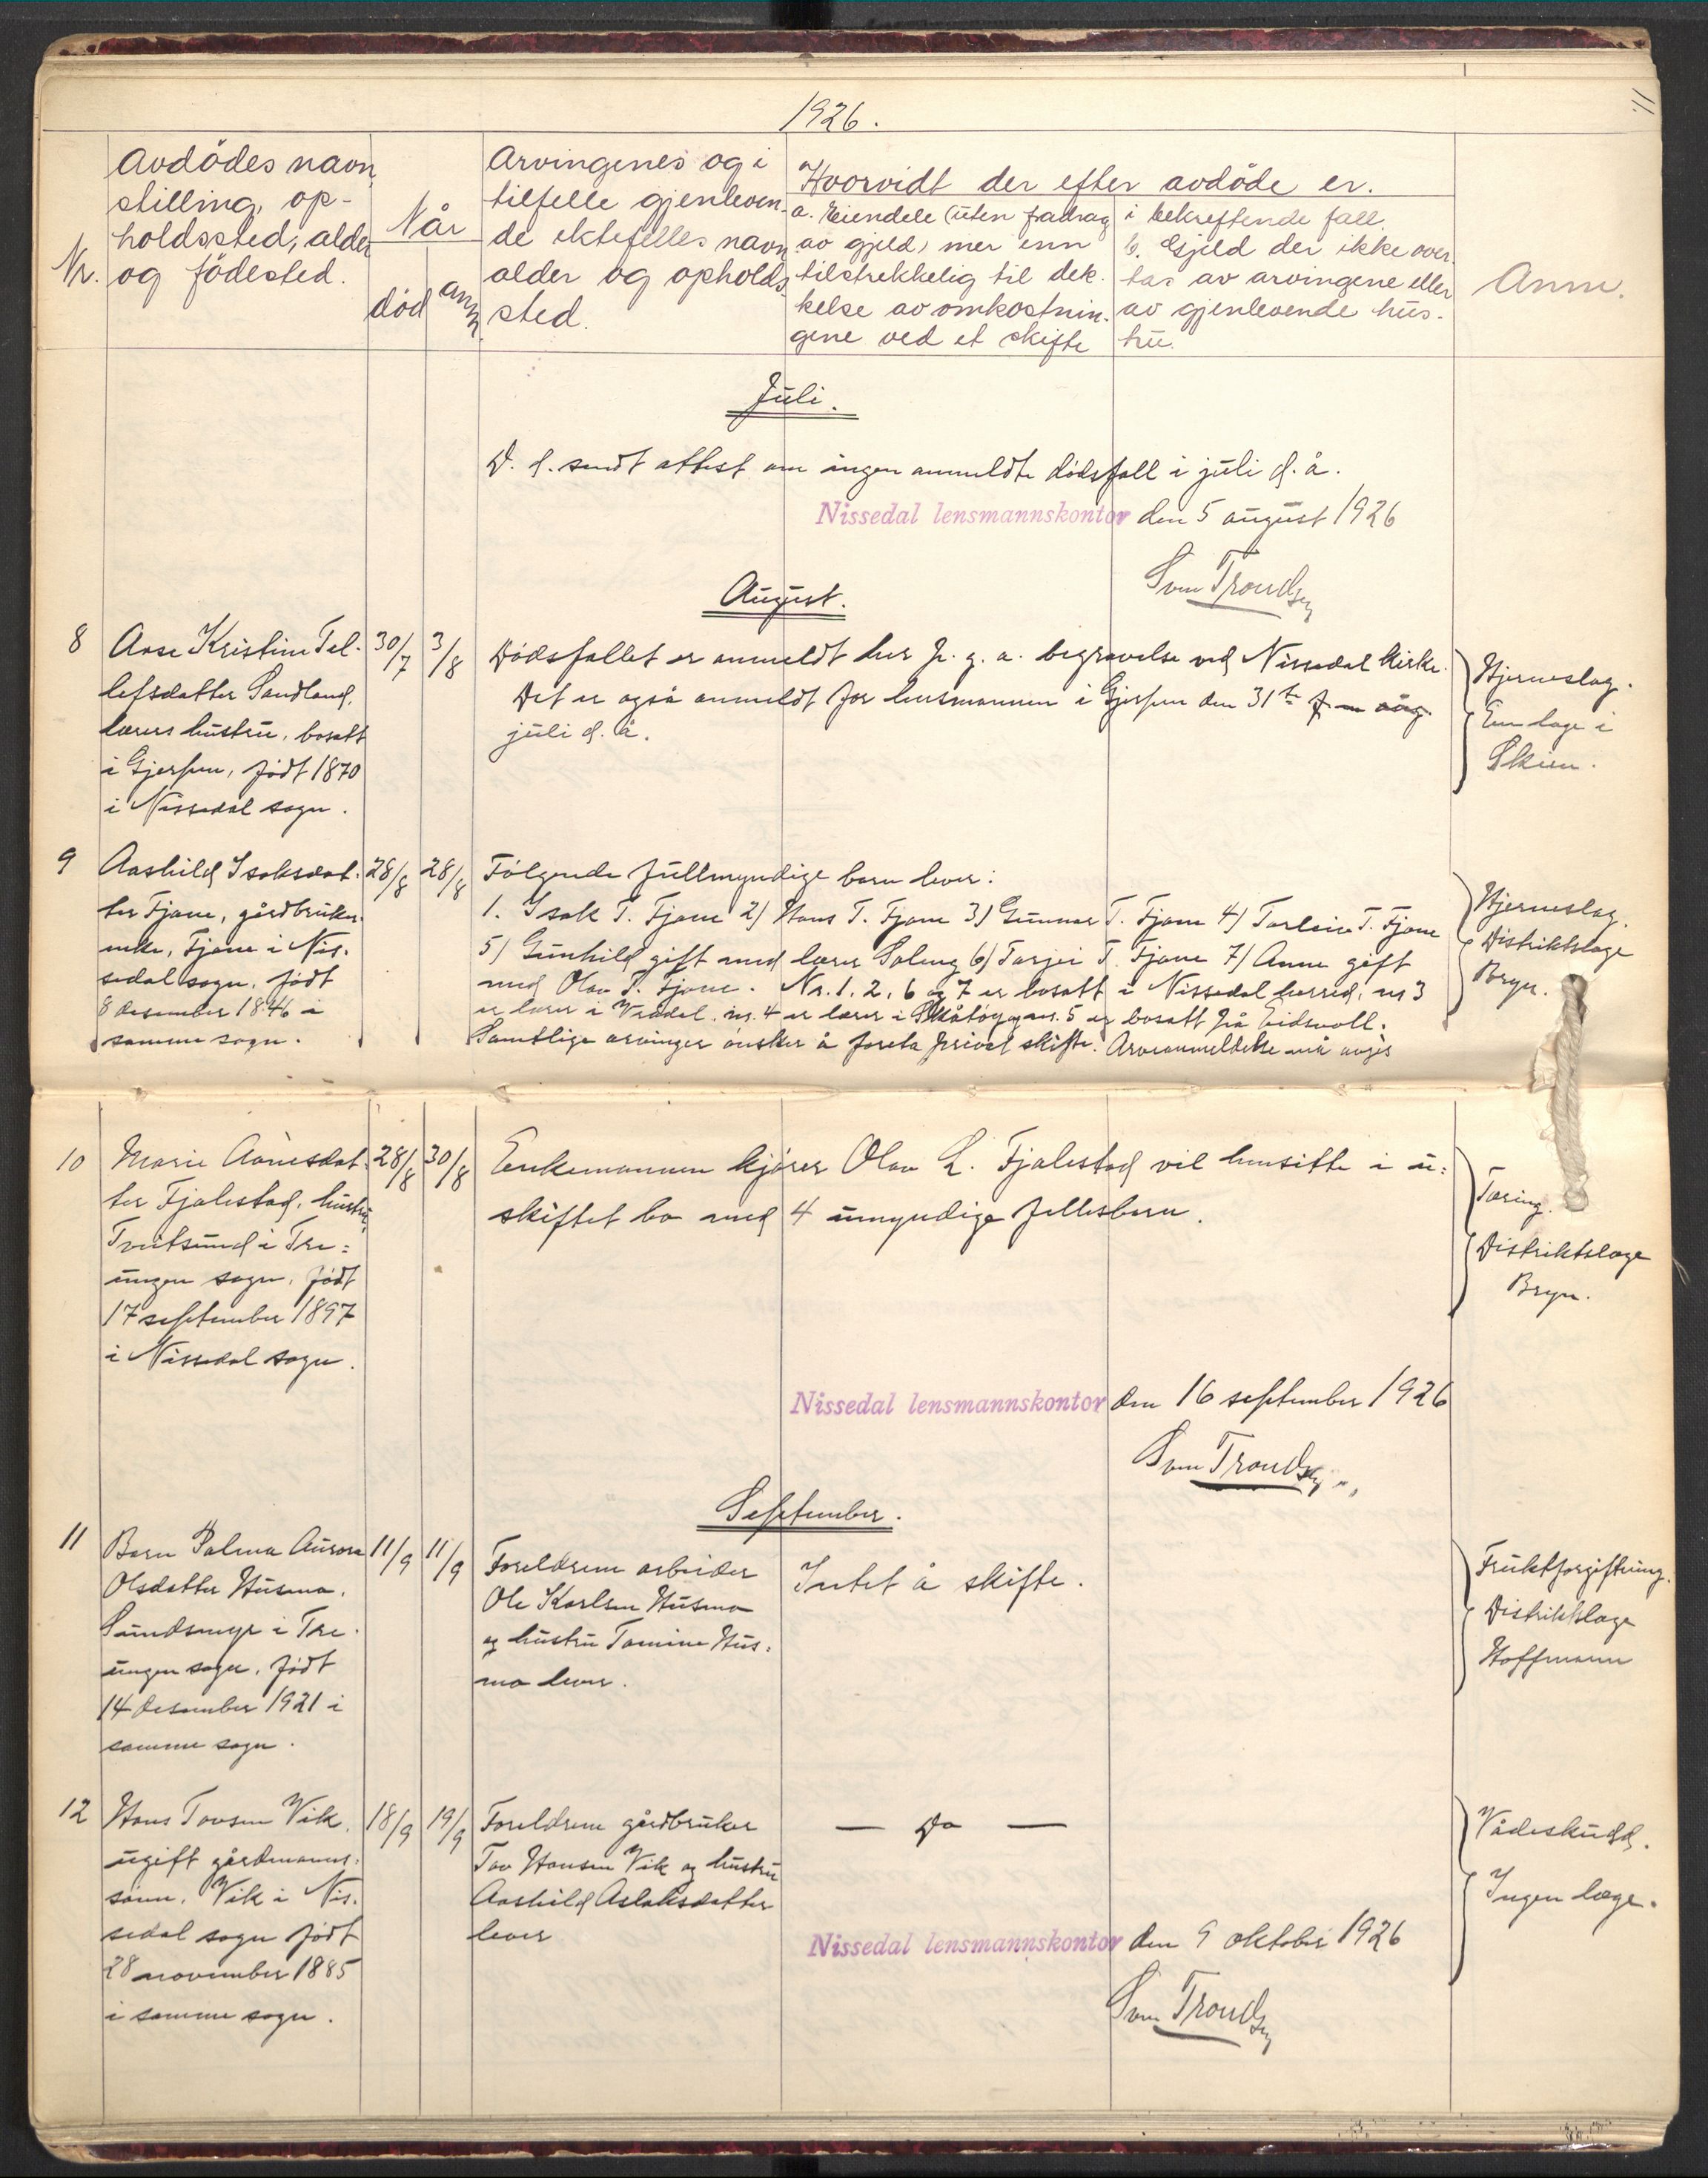 11
1926.
Nr.
Avdödes navn,
stilling, op-
holdssted, alder
og födested.
Når
död
anm.
Arvingenes og i
tilfelle gjenleven-
de ektefelles navn
alder og opholds-
sted.
Hvorvidt der efter avdöde er.
a. Eiendele (uten fradrag
av gjeld) mer enn
tilstrekkelig til dek-
kelse av omkostnin-
gene ved et skifte
i bekreftende fall.
b. Gjeld der ikke over-
tas av arvingene eller
av gjenlevende hus-
tru.
Anm.
Juli.
D. d. sendt attest om ingen anmeldte dødsfall i juli d. å.
Nissedal lensmannskontor den 5 august 1926
Sven Trondsen
August.
8
Aase Kristine Tel-
lefsdatter Sandland,
lærers hustru, bosatt
i Gjerpen, født 1870
i Nissedal sogn.
30/7
3/8
Dødsfallet er anmeldt her p. g. a. begravelse ved Nissedal kirke.
Det er også anmeldt for lensmannen i Gjerpen den 31te
juli d. å.
Hjerneslag.
En læge i
Skien.
9
Aashild Isaksdat-
ter Fjone, gårdbruker-
enke, Fjone i Nis-
sedal sogn, født
8 desember 1846 i
samme sogn.
28/8
28/8
Følgende fullmyndige barn lever:
1. Isak T. Fjone 2) Hans T. Fjone 3) Gunnar T. Fjone 4) Torleiv T. Fjone
5) Gunhild gift med lærer Soleng 6) Tarjei T. Fjone 7) Anne gift
med Olav T. Fjone. Nr. 1, 2, 6 og 7 er bosatt i Nissedal herred, nr 3
er lærer i Vrådal, nr. 4 er lærer i Skåtøy og nr. 5 er bosatt på Eidsvoll.
Samtlige arvinger ønsker å foreta privat skifte. Arveanmeldelse må avgis
Hjerneslag.
Distriktslæge
Bryn.
10
Marie Aanesdat-
ter Fjalestad, hustru,
Tveitsund i Tre=
ungen sogn, født
17 september 1897
i Nissedal sogn.
28/8
30/8
Enkemannen kjører Olav L. Fjalestad vil hensitte i u=
skiftet bo med 4 umyndige fellesbarn.
Tæring.
Distriktslæge
Bryn.
Nissedal lensmannskontor den 16 september 1926
Sven Trondsen
September.
11
Barn Palma Aurora
Olsdatter Husmo,
Sundsmyr i Tre-
ungen sogn, født
14 desember 1921 i
samme sogn.
11/9
11/9
Foreldrene arbeider
Ole Karlsen Husmo
og hustru Tomine Hus=
mo lever.
Intet å skifte.
Fruktforgiftning.
Distriktslæge
Hoffmann
12
Hans Tovsen Vik,
ugift gårdmanns=
sønn, Vik i Nis-
sedal sogn født
28 november 1885
i samme sogn.
18/9
19/9
Foreldrene gårdbruker
Tov Hansen Vik og hustru
Aashild Aslaksdatter
lever
— Do —
Vådeskudd.
Ingen læge.
Nissedal lensmannskontor den 9 oktober 1926
Sven Trondsen